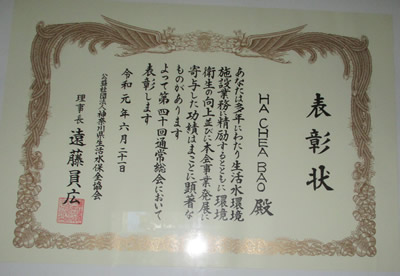 表彰状
HA CHEA BAO 殿
あなたは多年にわたり生活水環境
施設業務に精励するとともに環境
衛生の向上並びに本会事業発展に
寄与した功績はまことに顕著な
ものがあります
よって第四十回通常総会において
表彰します
令和元年六月二十一日
公益社団法人神奈川県生活水保全協会
理事長 遠藤員広